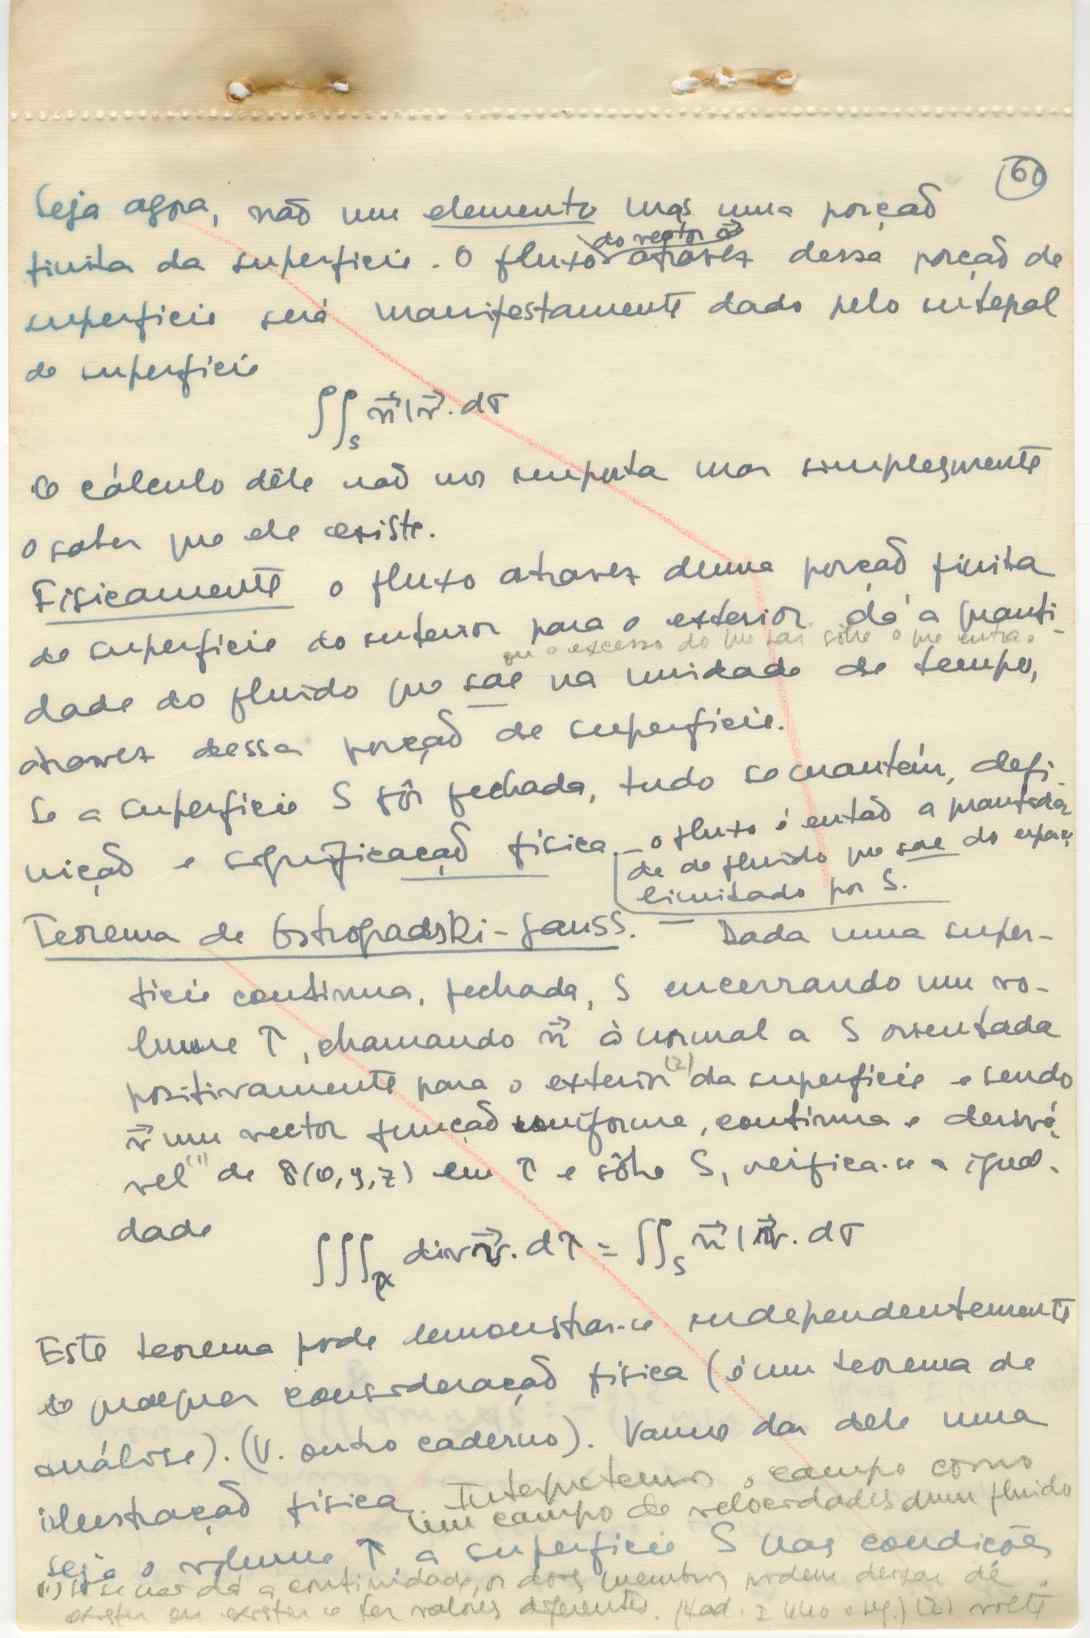 60
Seja agora, não um elemento mas uma porção
finita da superficie. O fluxo do vector v⃗ atravez dessa porção de
superficie será manifestamente dado pelo integral
de superficie
∬_S n⃗|v⃗. dσ
O cálculo dêle não nos importa mas simplesmente
o saber que ele existe.
Fisicamente o fluxo atravez duma porção finita
de superficie do interior para o exterior dá a quanti-
ou o excesso do que sai sôbre o que entra.
dade do fluido que sae na unidade de tempo,
atravez dessa porção de superficie.
Se a superficie S fôr fechada, tudo se mantém, defi-
nição e significação física _ o fluxo é então a quantida-
de de fluido que sae do espaço
limitado por S.
Teorema de Ostrogradski-Gauss. — Dada uma super-
ficie continua, fechada, S encerrando um vo-
lume τ, chamando n⃗ à normal a S orientada
positivamente para o exterior (2) da superficie e sendo
v⃗ um vector função uniforme, continua e derivá-
vel (1) de P(x, y, z) em τ e sôbre S, verifica-se a igual-
dade
∭_τ div v⃗. dτ = ∬_S n⃗|v⃗. dσ
Este teorema pode demonstrar-se independentemente
de qualquer consideração física (é um teorema de
análise). (V. outro caderno). Vamos dar dele uma
ilustração física. Interpretemos o campo como
um campo de velocidades dum fluido
seja o volume τ, a superficie S nas condições
(1) se não dá a continuidade, os dois membros podem deixar de
existir ou existir e ter valores diferentes. (2) volte